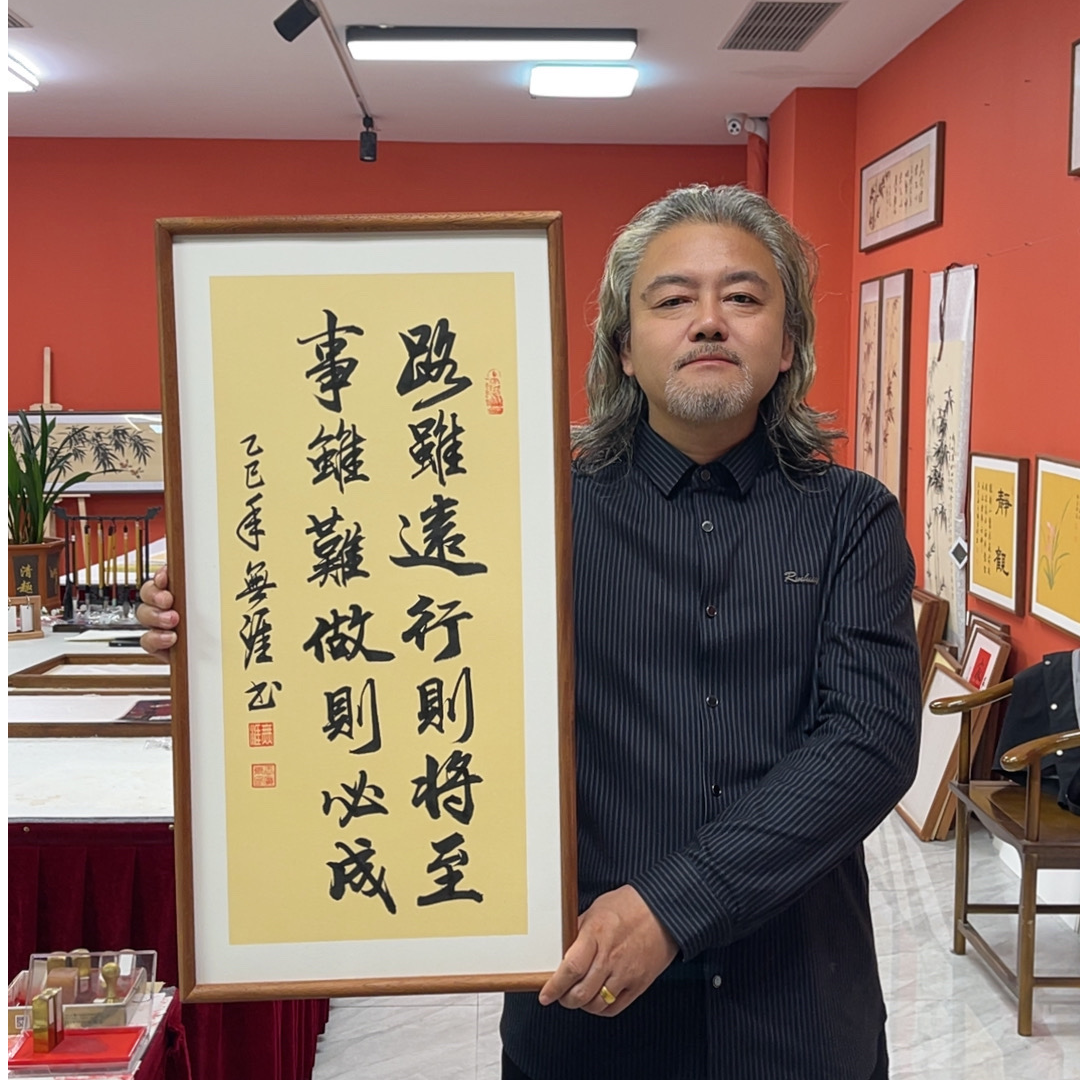 路雖遠行則將至
事雖難做則必成
乙巳年無涯书
靜觀
清趣